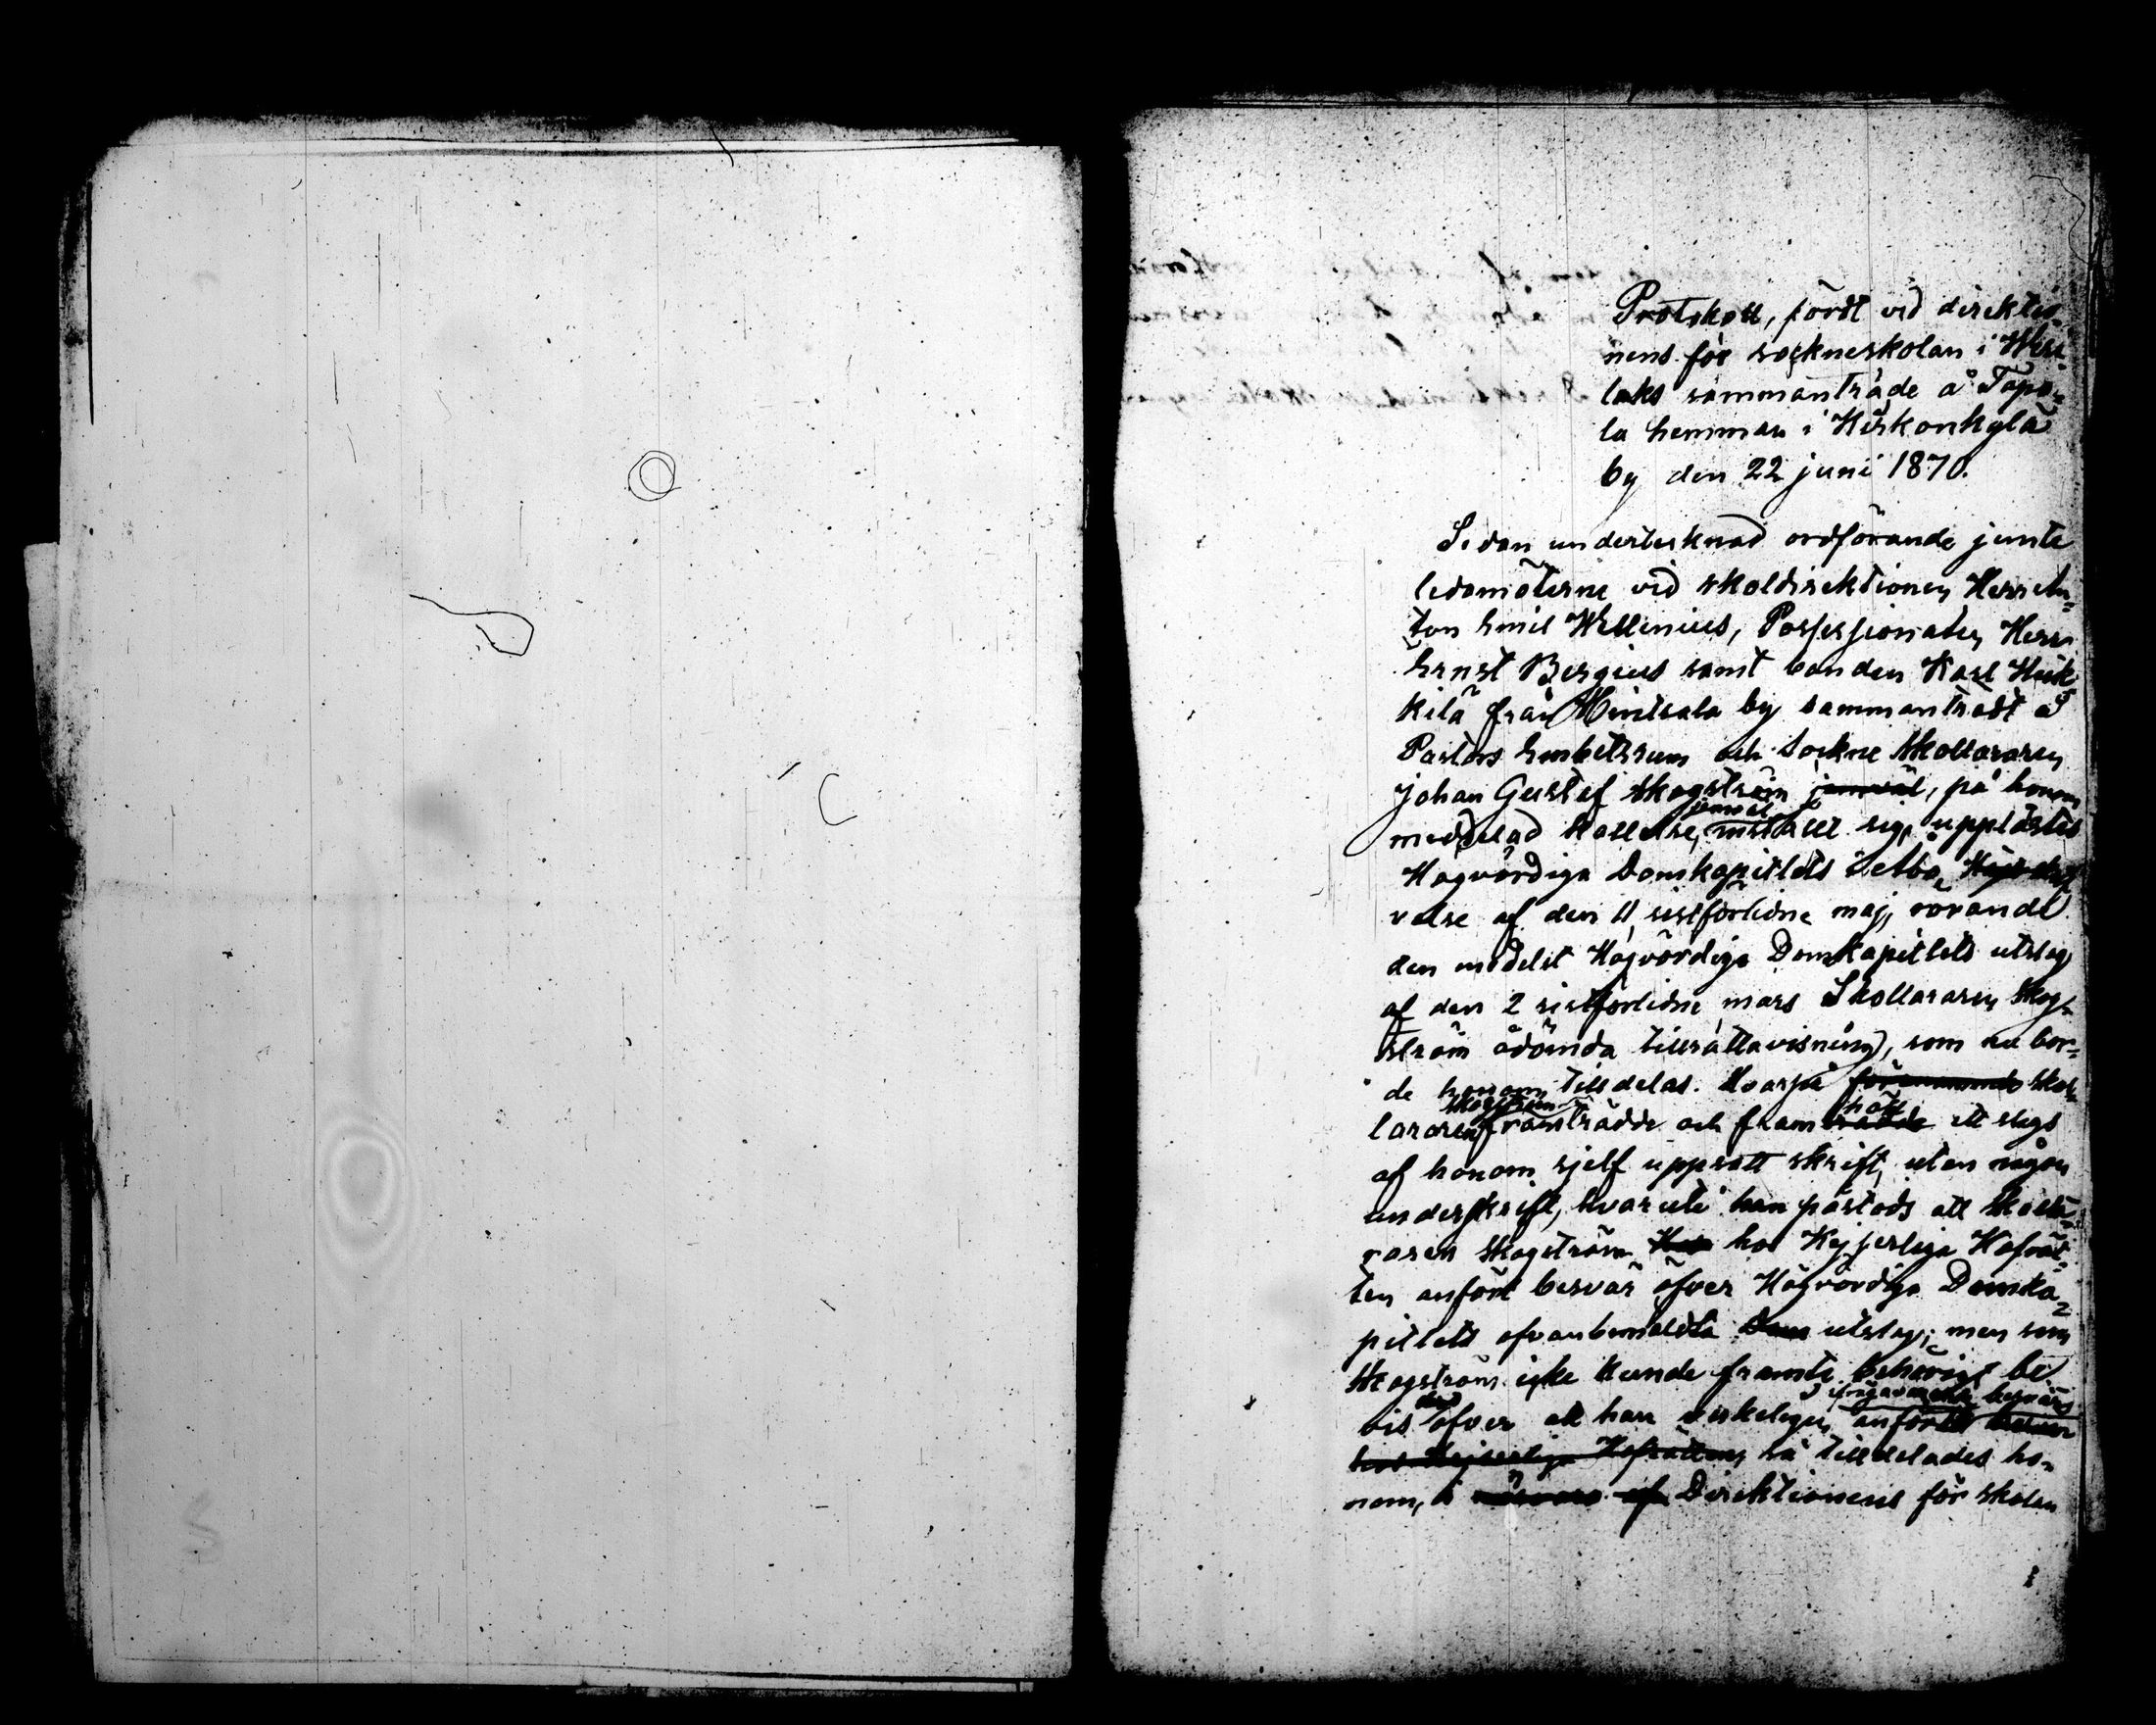 Protokoll, fördt vid direktio-
nens för sockneskolan i Wir-
laks sammanträde å Tapo-
la hemman i Kirkonkylä
by den 22 juni 1870.
Sedan undertecknad ordförande jemte
ledamöterne vid skoldirektionen Herr An-
ton Emil Wellenius, Possessionaten Herr
Ernst Bergius samt bonden Karl Heik-
kilä från Hintsala by sammanträdt å
Pastors Embetsrum och Sockne Skolläraren
Johan Gustaf Skogström jemväl, på honom
meddelad kallelse, jemväl inställt sig, upplästes
Högvördiga Domkapitlets i Åbo
velse af den 11 sistförlidne maj, rörande
den medelst Högvördiga Domkapitlets utslag
af den 2 sistförlidne mars Skolläraren Skog-
ström ådömda tillrättavisning, som nu bor-
de honom tilldelas. Hvarpå förenämnde skol-
läraren Skogström framträdde och framträdde höll ett slags
af honom sjelf uppsatt skrift, utan någon
underskrift, hvaruti han påstods att Skollä-
raren Skogström hos Kejserliga Hofrät-
ten anfört besvär öfver Högvördiga Domka-
pitlets ofvanbemäldta Dom utslag; men som
Skogström icke kunde framte behörigt be
vis deröfver att han verkeligen anfördt ifrågavarande besvär
hos Kejserliga Hofrätten, så tilldelades ho-
nom, i närvaro af Direktionens för skolan